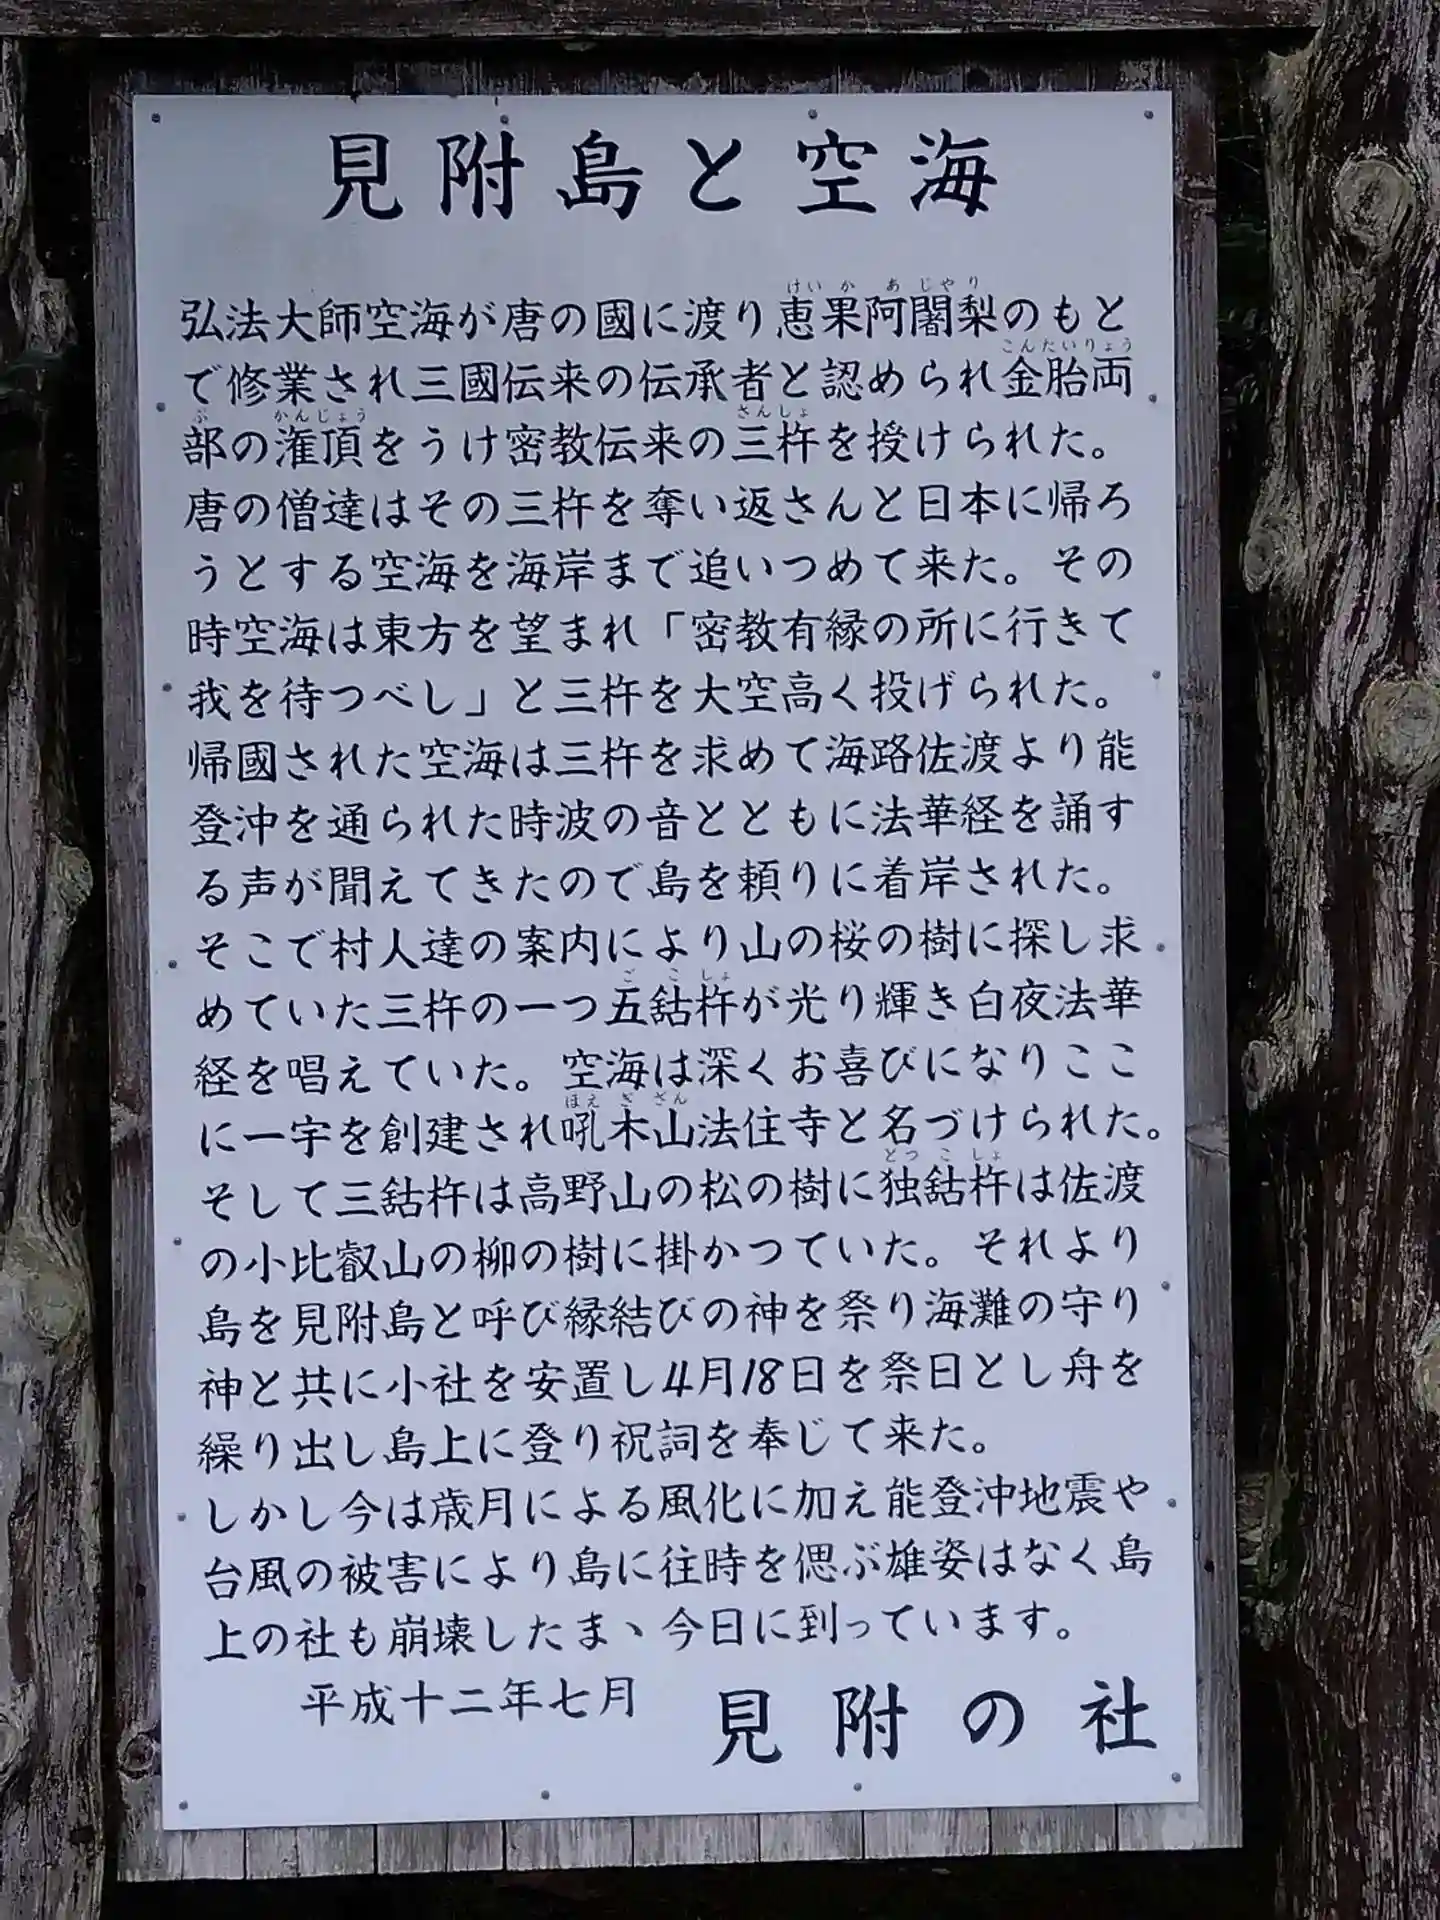 見附島と空海
弘法大師空海が唐の國に渡り恵果阿闍梨のもと
で修業され三國伝来の伝承者と認められ金胎両
部の潅頂をうけ密教伝来の三杵を授けられた。
唐の僧達はその三杵を奪い返さんと日本に帰ろ
うとする空海を海岸まで追いつめて来た。その
時空海は東方を望まれ「密教有縁の所に行きて
我を待つべし」と三杵を大空高く投げられた。
帰國された空海は三杵を求めて海路佐渡より能
登沖を通られた時波の音とともに法華経を誦す
る声が聞えてきたので島を頼りに着岸された。
そこで村人達の案内により山の桜の樹に探し求
めていた三杵の一つ五鈷杵が光り輝き白夜法華
経を唱えていた。空海は深くお喜びになりここ
に一宇を創建され吼木山法住寺と名づけられた。
そして三鈷杵は高野山の松の樹に独鈷杵は佐渡
の小比叡山の柳の樹に掛かつていた。それより
島を見附島と呼び縁結びの神を祭り海灘の守り
神と共に小社を安置し4月18日を祭日とし舟を
繰り出し島上に登り祝詞を奉じて来た。
しかし今は歳月による風化に加え能登沖地震や
台風の被害により島に往時を偲ぶ雄姿はなく島
上の社も崩壊したまヽ今日に到っています。
平成十二年七月 見附の社